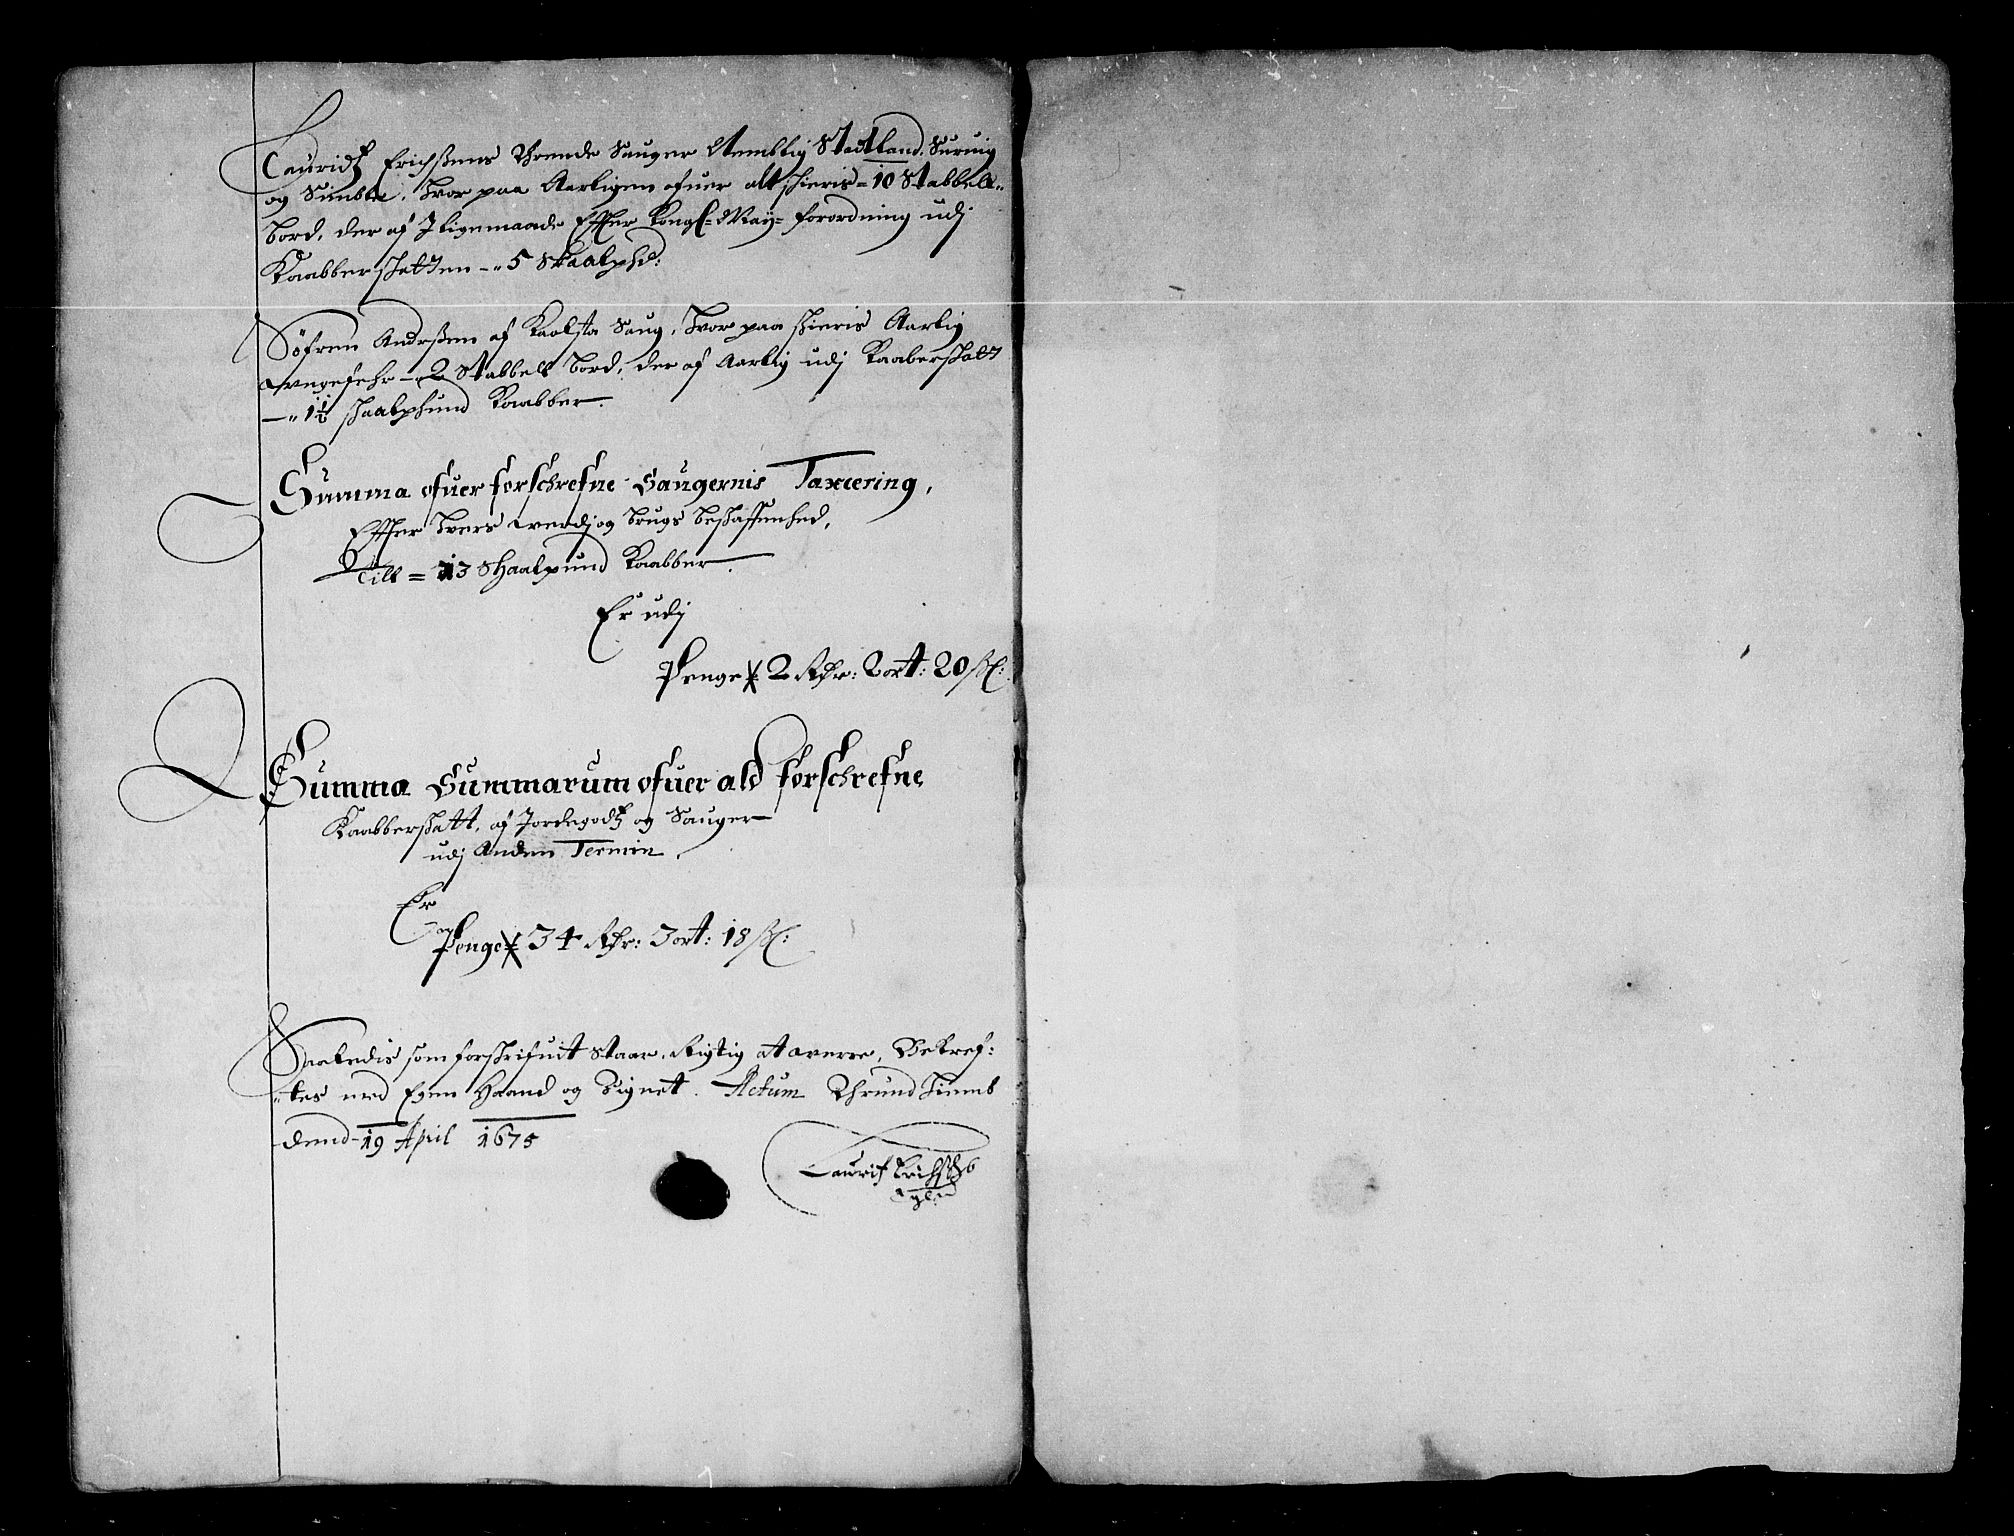 Lauridtz Erichssens Thrende Sauger Nemblig Stadtland, Suruig
og Simble, huor paa Aarligen ofuer alt skieris = 10 Stabbels
bord, der af J ligemaade Effter Kongl= May= forordning udj
Kaabberskatten -" 5 Skaalpd:
Søfren Andrssen af Kaalsta Saug, huor paa skieris Aarlig
wngefehr - 2 Stabbels bord, der af Aarlig udj Kaaberskatt
-" 1½ skaalphund Kaabber.
Summa ofuer forschrefne Saugernis Taxering,
Effter huers werdj og brugs beskaffenhed,
Till = 13 Skaalpund Kaabber.
Er udj
Penge 2 Rdr: 2 ort: 20 sk:
Summa Summarum ofuer ald forschrefne
Kaabberskatt, af Jordegodtz og Sauger
udj Anden Termin.
Er
Penge 34 Rdr: 3 ort: 18 sk:
Saaledis som forskrifuit staar, Rigtig at werre, Bekref=
tes med Egen Haand og Signet. Actum Thrundhiemb
dend 19 April 1675
Laurits Erichss